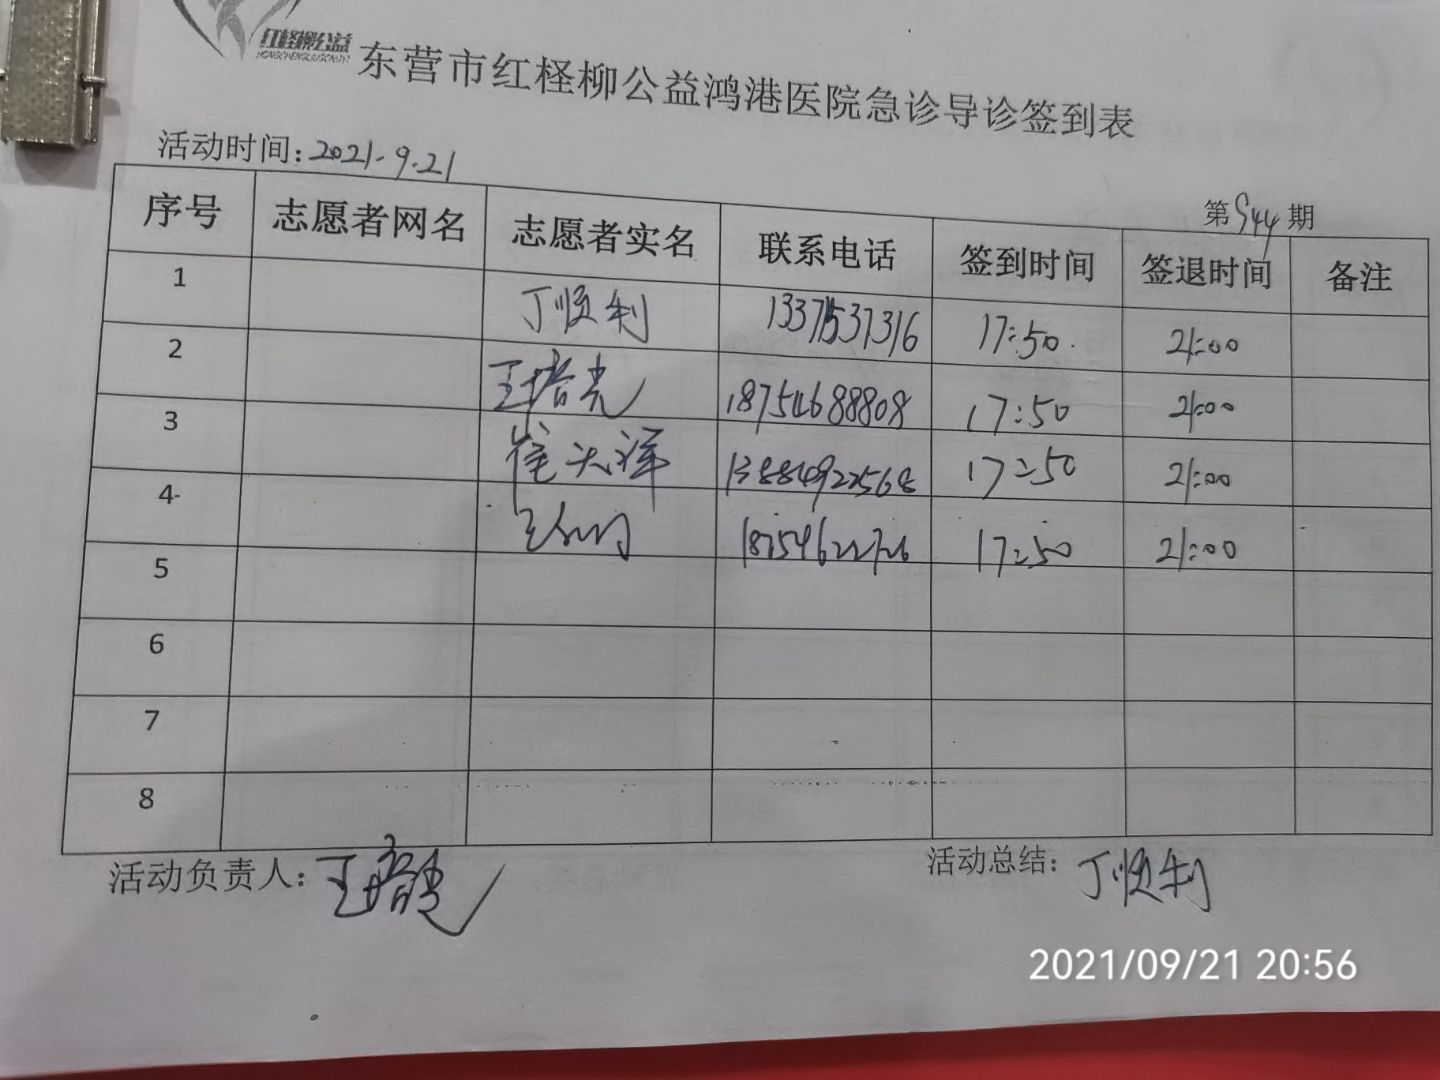 红柽柳公益
东营市红柽柳公益鸿港医院急诊导诊签到表
活动时间:2021.9.21
第944期
序号 志愿者网名 志愿者实名 联系电话 签到时间 签退时间 备注
1 丁顺利 17:50 21:00
2 王培光 18754688808 17:50 21:00
3 崔天祥 13884922568 17:50 21:00
4 17:50 21:00
5
6
7
8
活动负责人:王培光
活动总结:丁顺利
2021/09/21 20:56